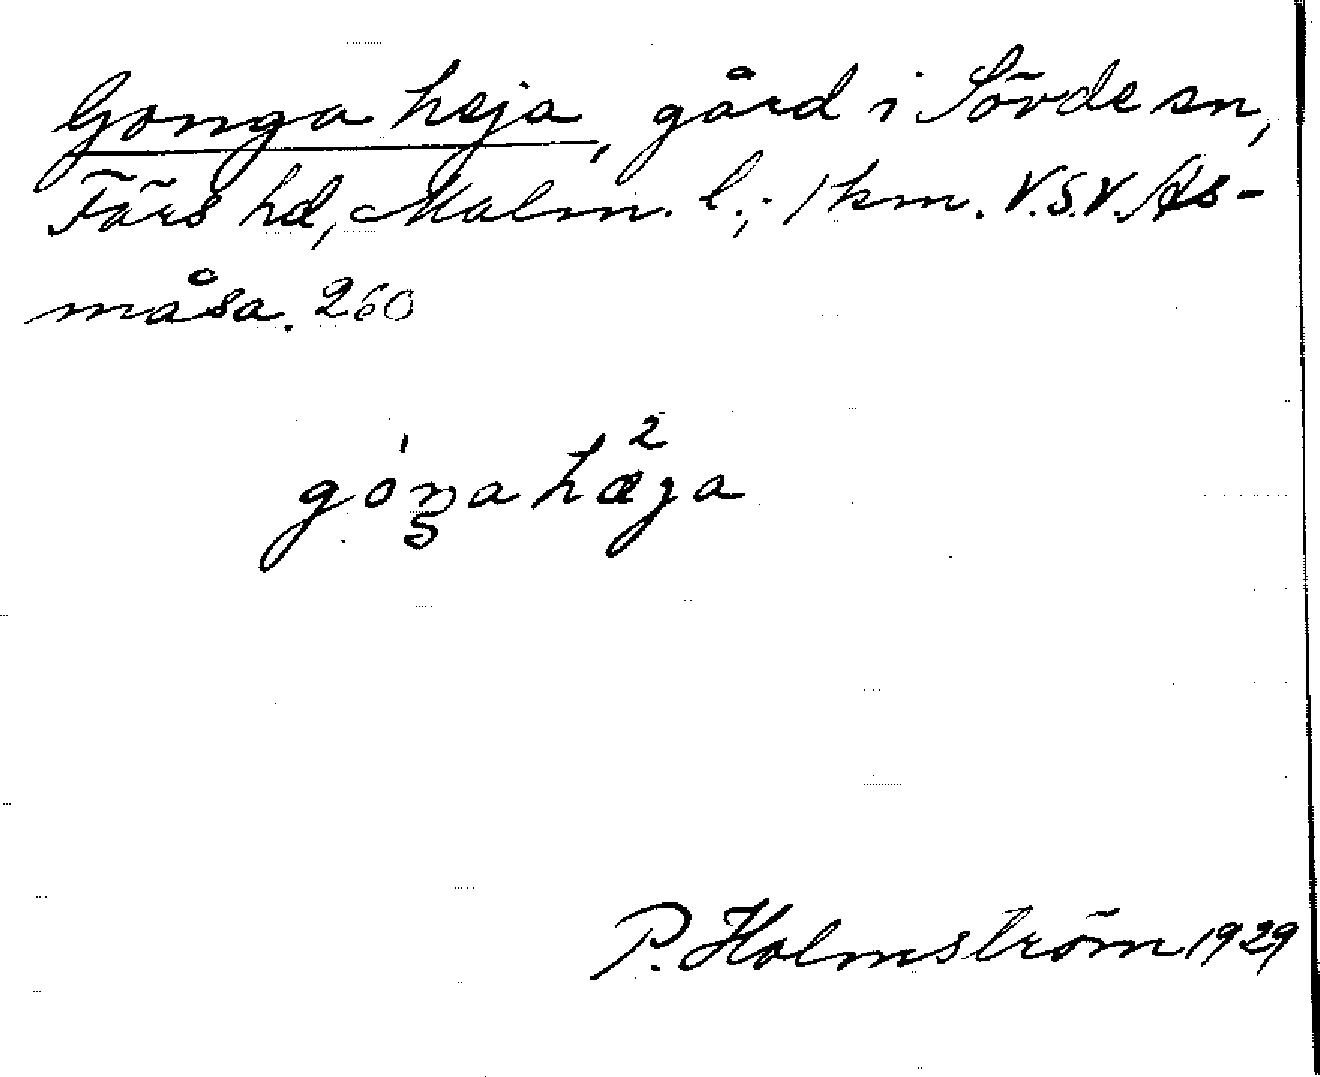 Gonga heja, gård i Sövde sn,
Färs hd, Malm. l.; 1 km. V.S.V. As-
måsa. 260
góŋa hæ²ja
P. Holmström 1929